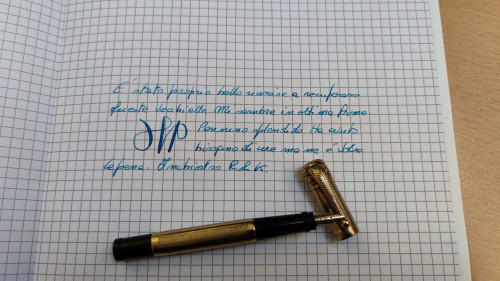 È stato proprio bello riuscire a recuperare
questa vecchietta Mi sembra in ottima forma
Pennino splendido Ha avuto
bisogno di cure ma ne è valsa
la pena. Inchiostro R&K.